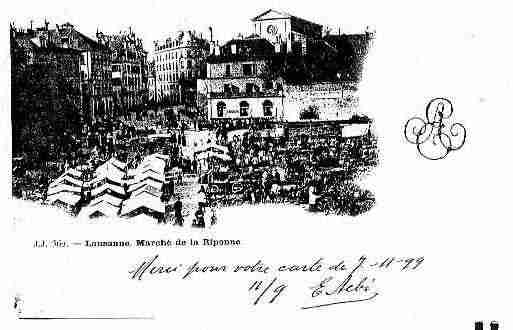 J.J. 561. — Lausanne. Marché de la Riponne
Merci pour votre carte du 7-11-99
11/9 E. Aebi